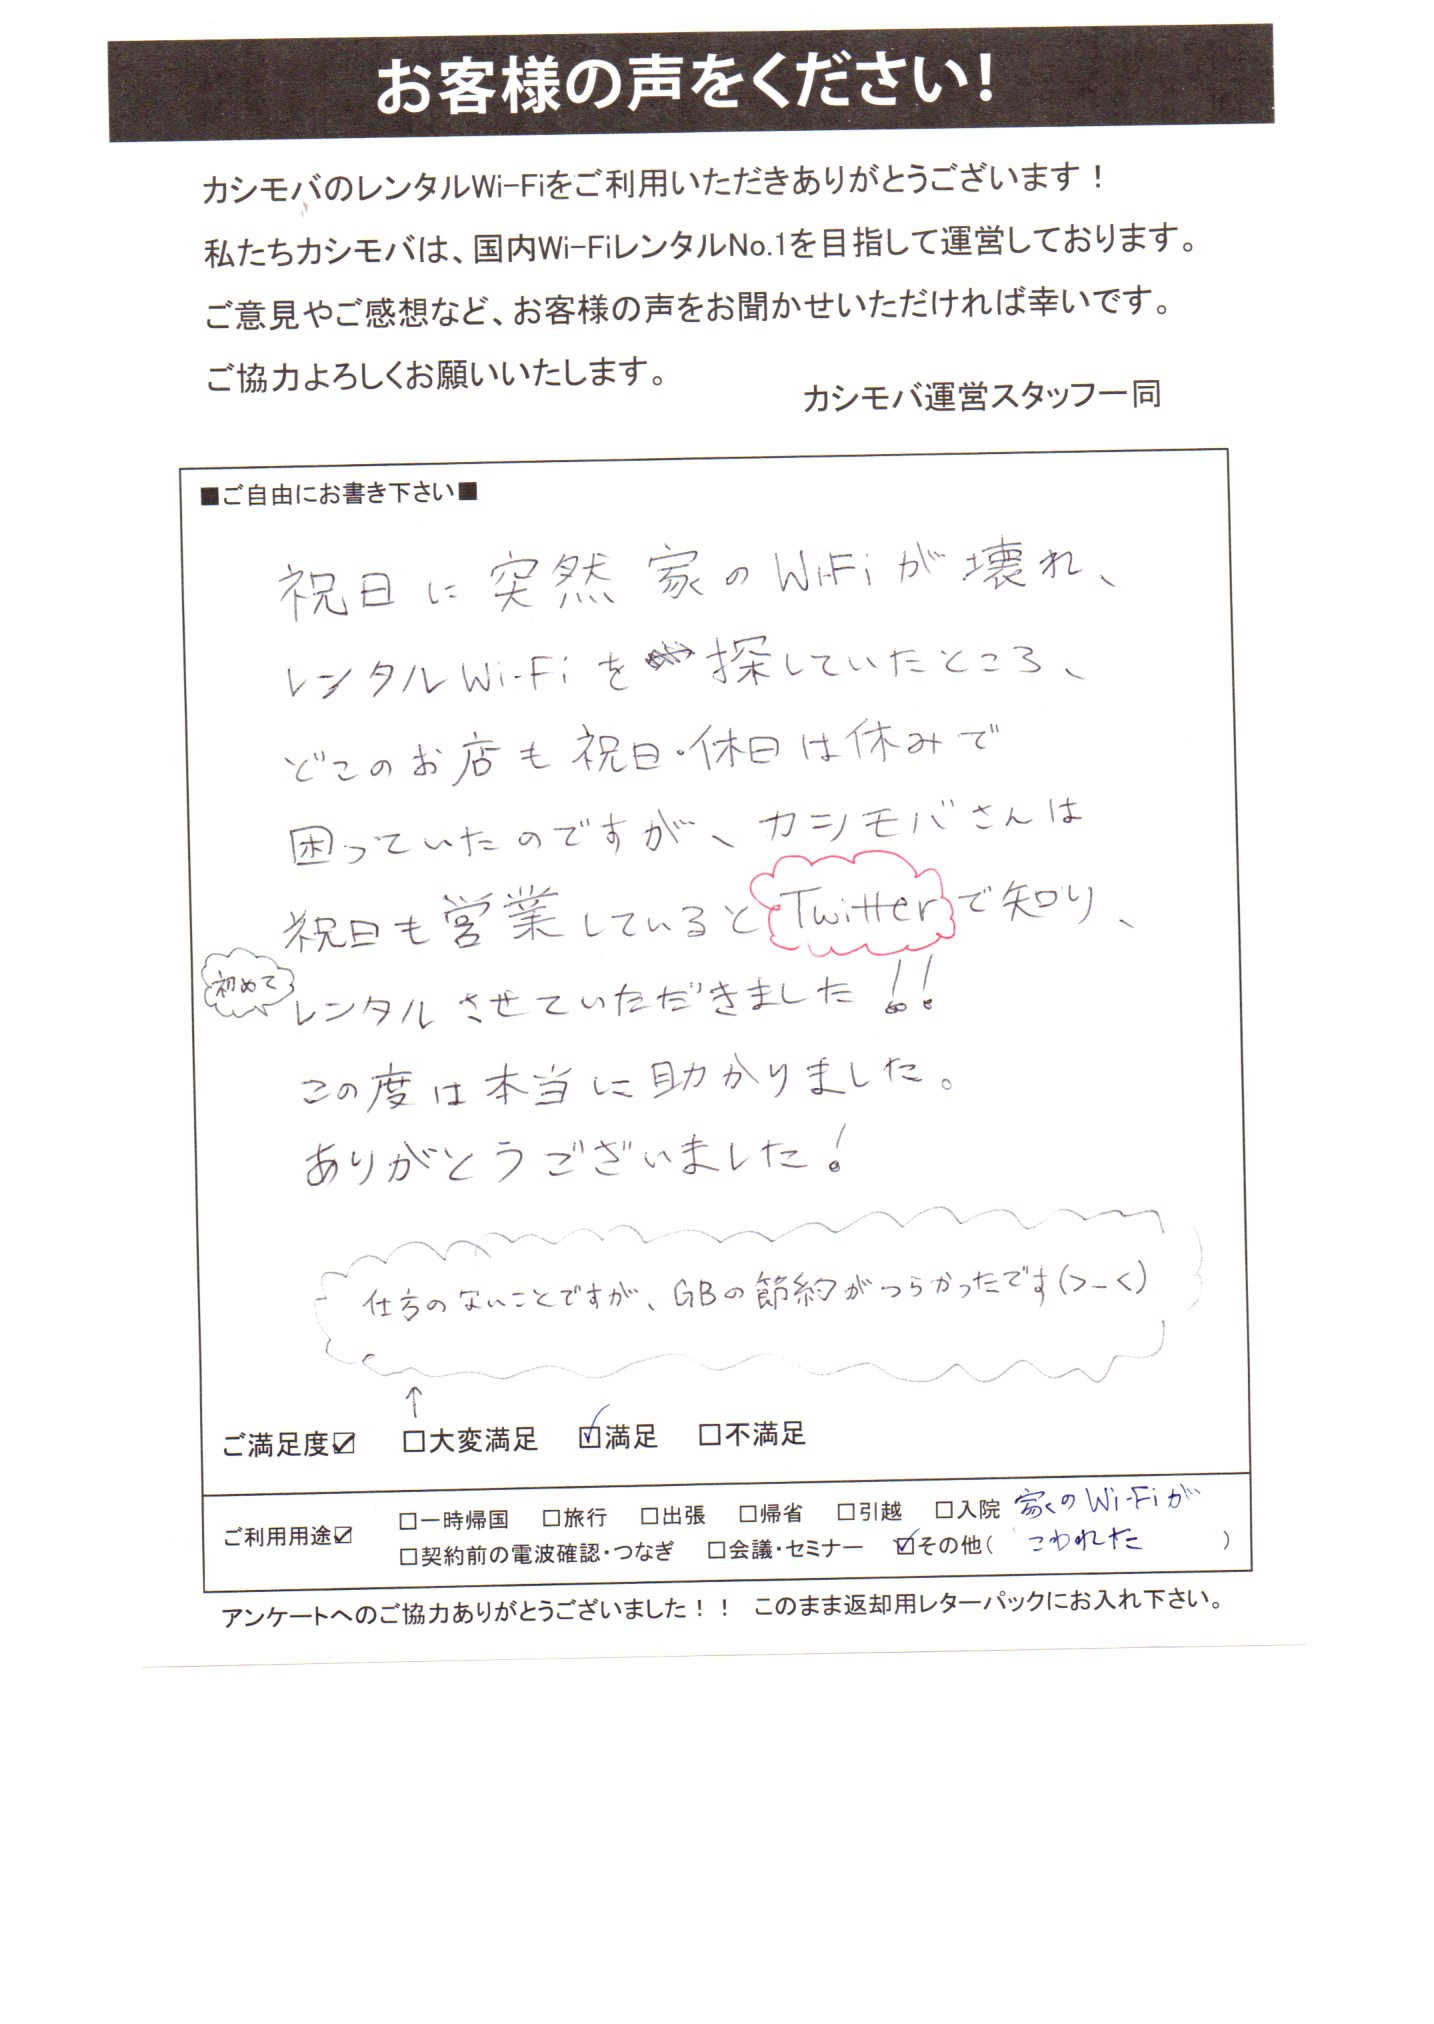 お客様の声をください!
カシモバのレンタルWi-Fiをご利用いただきありがとうございます！
私たちカシモバは、国内Wi-FiレンタルNo.1を目指して運営しております。
ご意見やご感想など、お客様の声をお聞かせいただければ幸いです。
ご協力よろしくお願いいたします。
カシモバ運営スタッフ一同
■ご自由にお書き下さい■
祝日に突然家のWi-Fiが壊れ、
レンタルWi-Fiを探していたところ、
どこのお店も祝日・休日は休みで
困っていたのですが、カシモバさんは
祝日も営業しているとTwitterで知り、
初めて
レンタルさせていただきました!!
この度は本当に助かりました。
ありがとうございました!
仕方のないことですが、GBの節約がつらかったです(>_<)
↑
ご満足度☑ □大変満足 ☑満足 □不満足
ご利用用途☑ □一時帰国 □旅行 □出張 □帰省 □引越 □入院 家のWi-Fiが
□契約前の電波確認・つなぎ □会議・セミナー ☑その他( こわれた )
アンケートへのご協力ありがとうございました！！ このまま返却用レターパックにお入れ下さい。